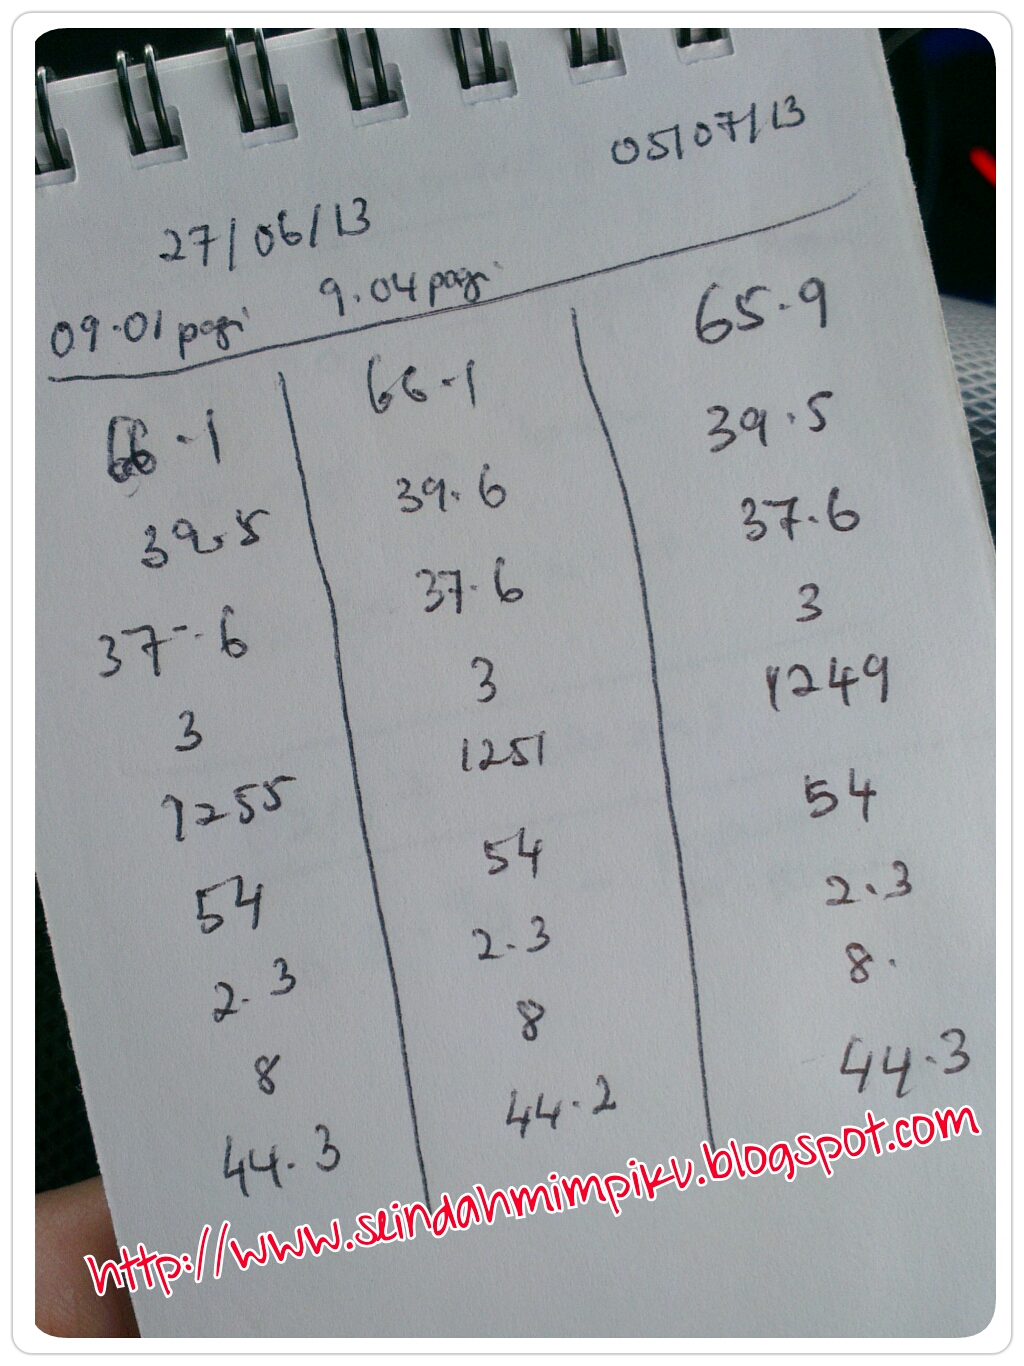 05/07/13
27/06/13
09.01 pagi 9.04 pagi
66.1 66.1 65.9
39.5 39.6 39.5
37.6 37.6 37.6
3 3 3
1255 1251 1249
54 54 54
2.3 2.3 2.3
8 8 8.
44.3 44.2 44.3
http://www.seindahmimpiku.blogspot.com